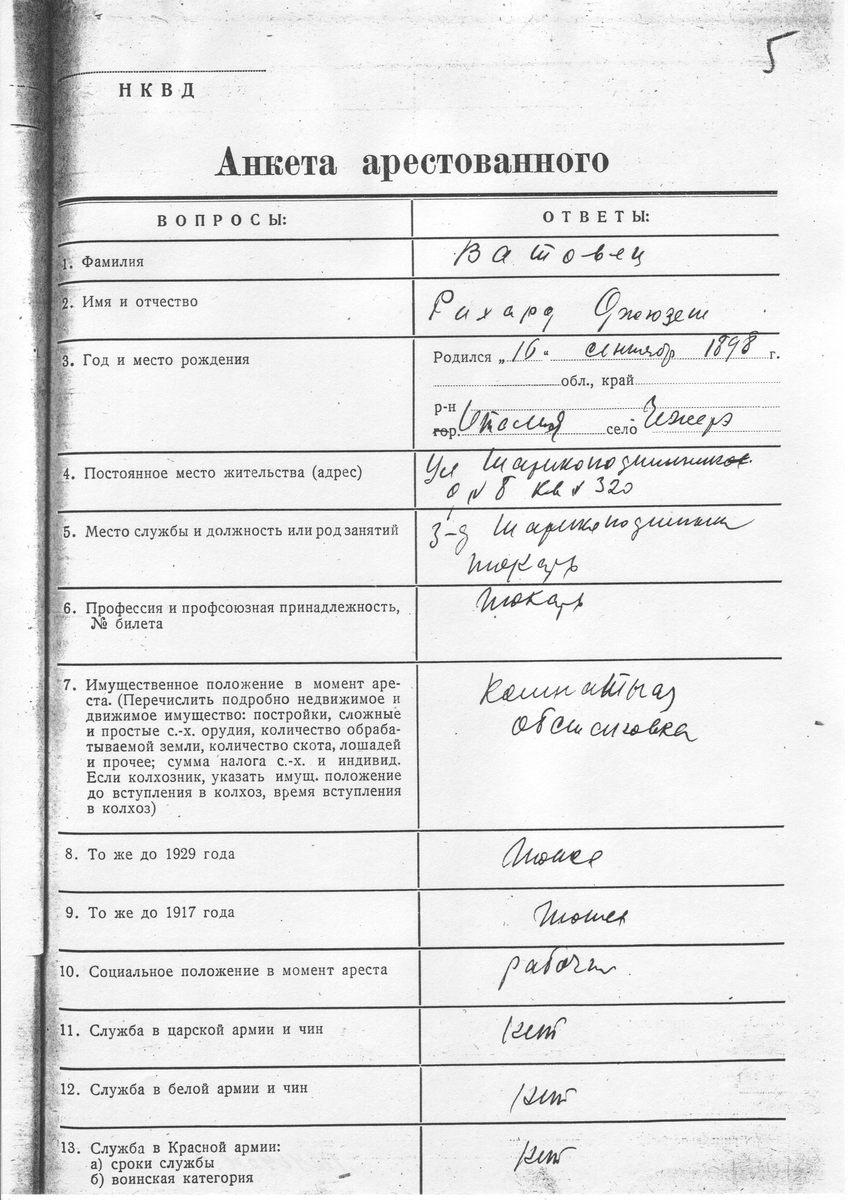 5
НКВД
Анкета арестованного
ВОПРОСЫ:
ОТВЕТЫ:
1. Фамилия
Ватовец
2. Имя и отчество
Рихард Джюзеп
3. Год и место рождения
Родился „16“ сентябр 1898 г.
обл., край
р-н
гор. Италия село
4. Постоянное место жительства (адрес)
Ул Шарикоподшипников.
д № 8 кв № 320
5. Место службы и должность или род занятий
З-д Шарикоподшипник
токарь
6. Профессия и профсоюзная принадлежность,
№ билета
токарь
7. Имущественное положение в момент аре-
ста. (Перечислить подробно недвижимое и
движимое имущество: постройки, сложные
и простые с.-х. орудия, количество обраба-
тываемой земли, количество скота, лошадей
и прочее; сумма налога с.-х. и индивид.
Если колхозник, указать имущ. положение
до вступления в колхоз, время вступления
в колхоз)
Комнатная
обстановка
8. То же до 1929 года
тоже
9. То же до 1917 года
тоже
10. Социальное положение в момент ареста
рабочий
11. Служба в царской армии и чин
нет
12. Служба в белой армии и чин
нет
13. Служба в Красной армии:
а) сроки службы
б) воинская категория
нет